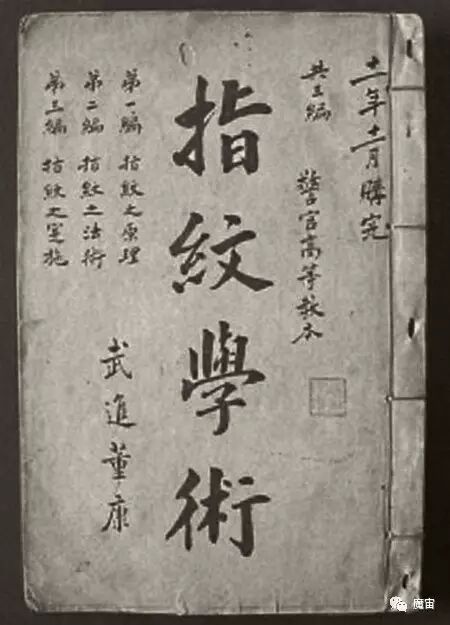 十一年十一月購完
共三編 警官高等教本
指紋學術
第一編 指紋之原理
第二編 指紋之法術
第三編 指紋之實施
武進董康
魔宙